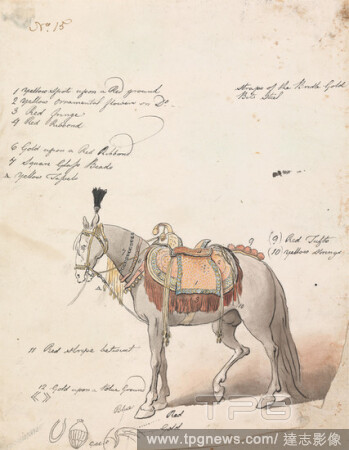 No. 15
1 Yellow Spots upon a Red ground
2 Yellow ornamented flowers on Do.
3 Red Fringe
4 Red Ribbond
6 Gold upon a Red Ribbond
7 Square Glass Beads
Yellow Tassels
Straps of the Bridle Gold
Bitt Steel
9
(9) Red Tufts
(10) Yellow Strings
11 Red Stripes betwixt
12 Gold upon a Blue Ground
Blue
Red
Gold
TPG
www.tpgnews.com / 達志影像